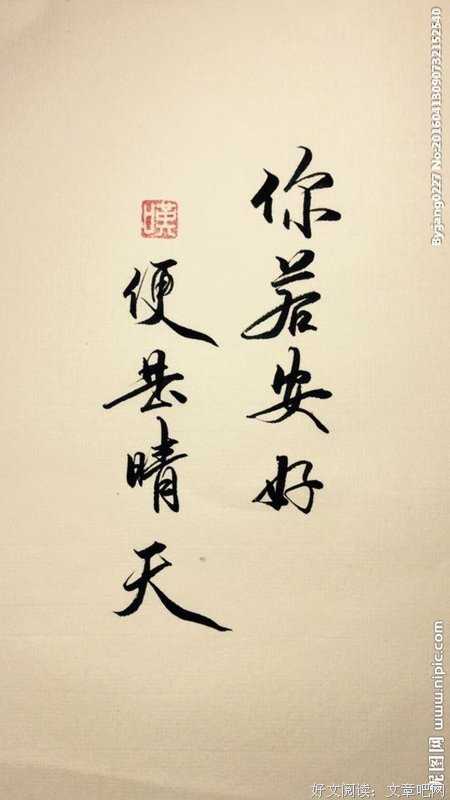 你若安好
便是晴天
嘆
By:jang0227 No:20160413090732152540
昵图网 www.nipic.com
好文阅读：文章吧网